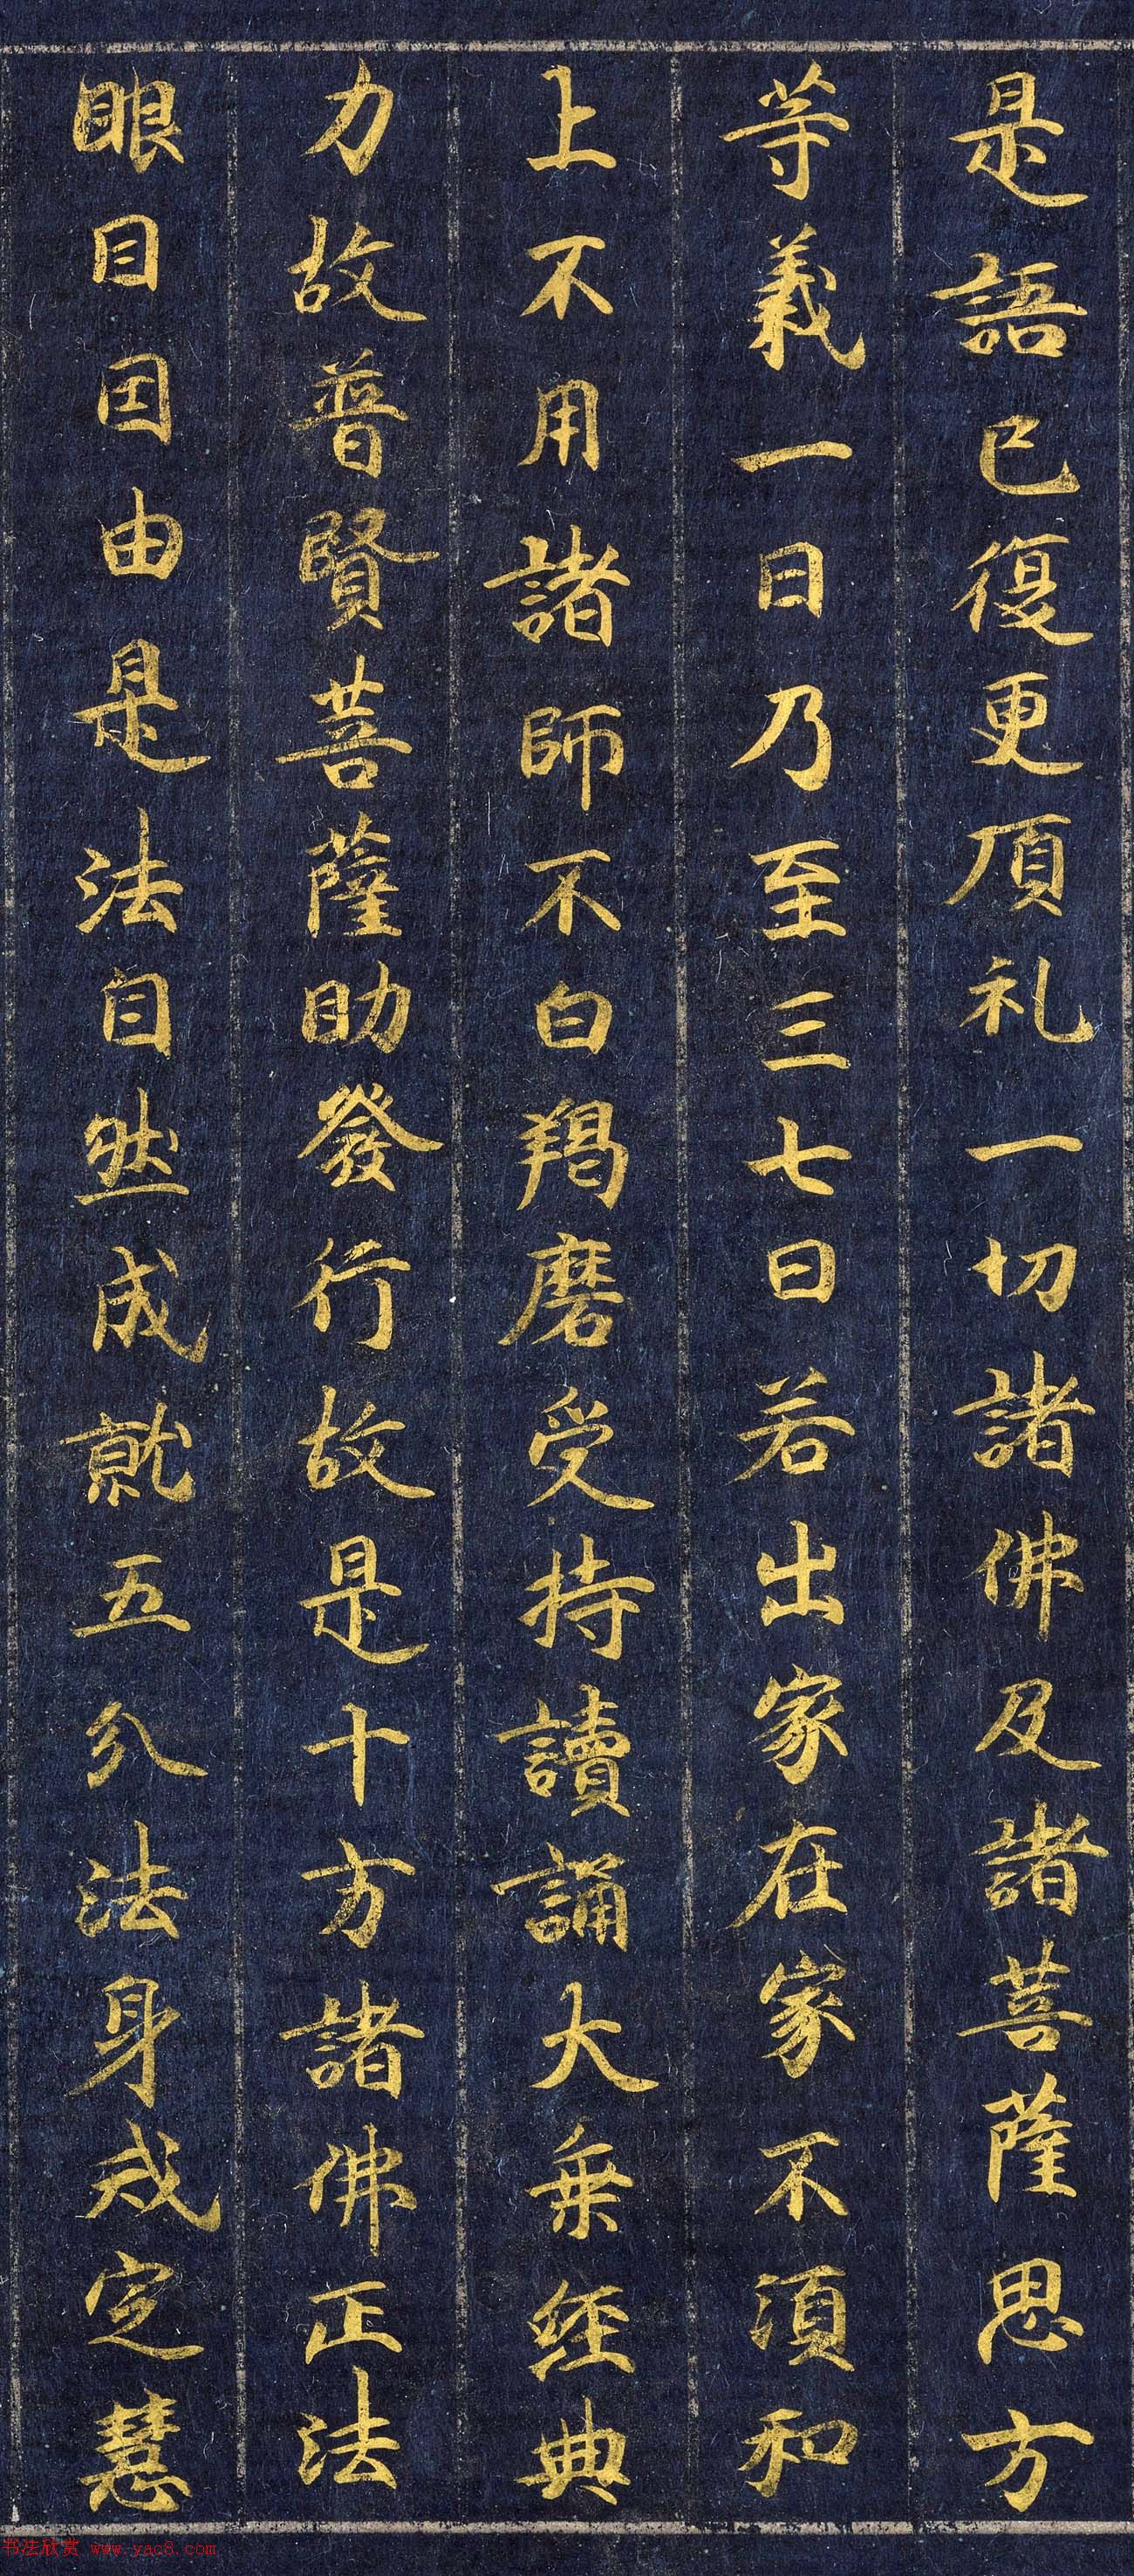 是語已復更頂礼一切諸佛及諸菩薩思方
等義一日乃至三七日若出家在家不須和
上不用諸師不白羯磨受持讀誦大乗経典
力故普賢菩薩助發行故是十方諸佛正法
眼目因由是法自然成就五分法身戒定慧
书法欣赏 www.yac8.com